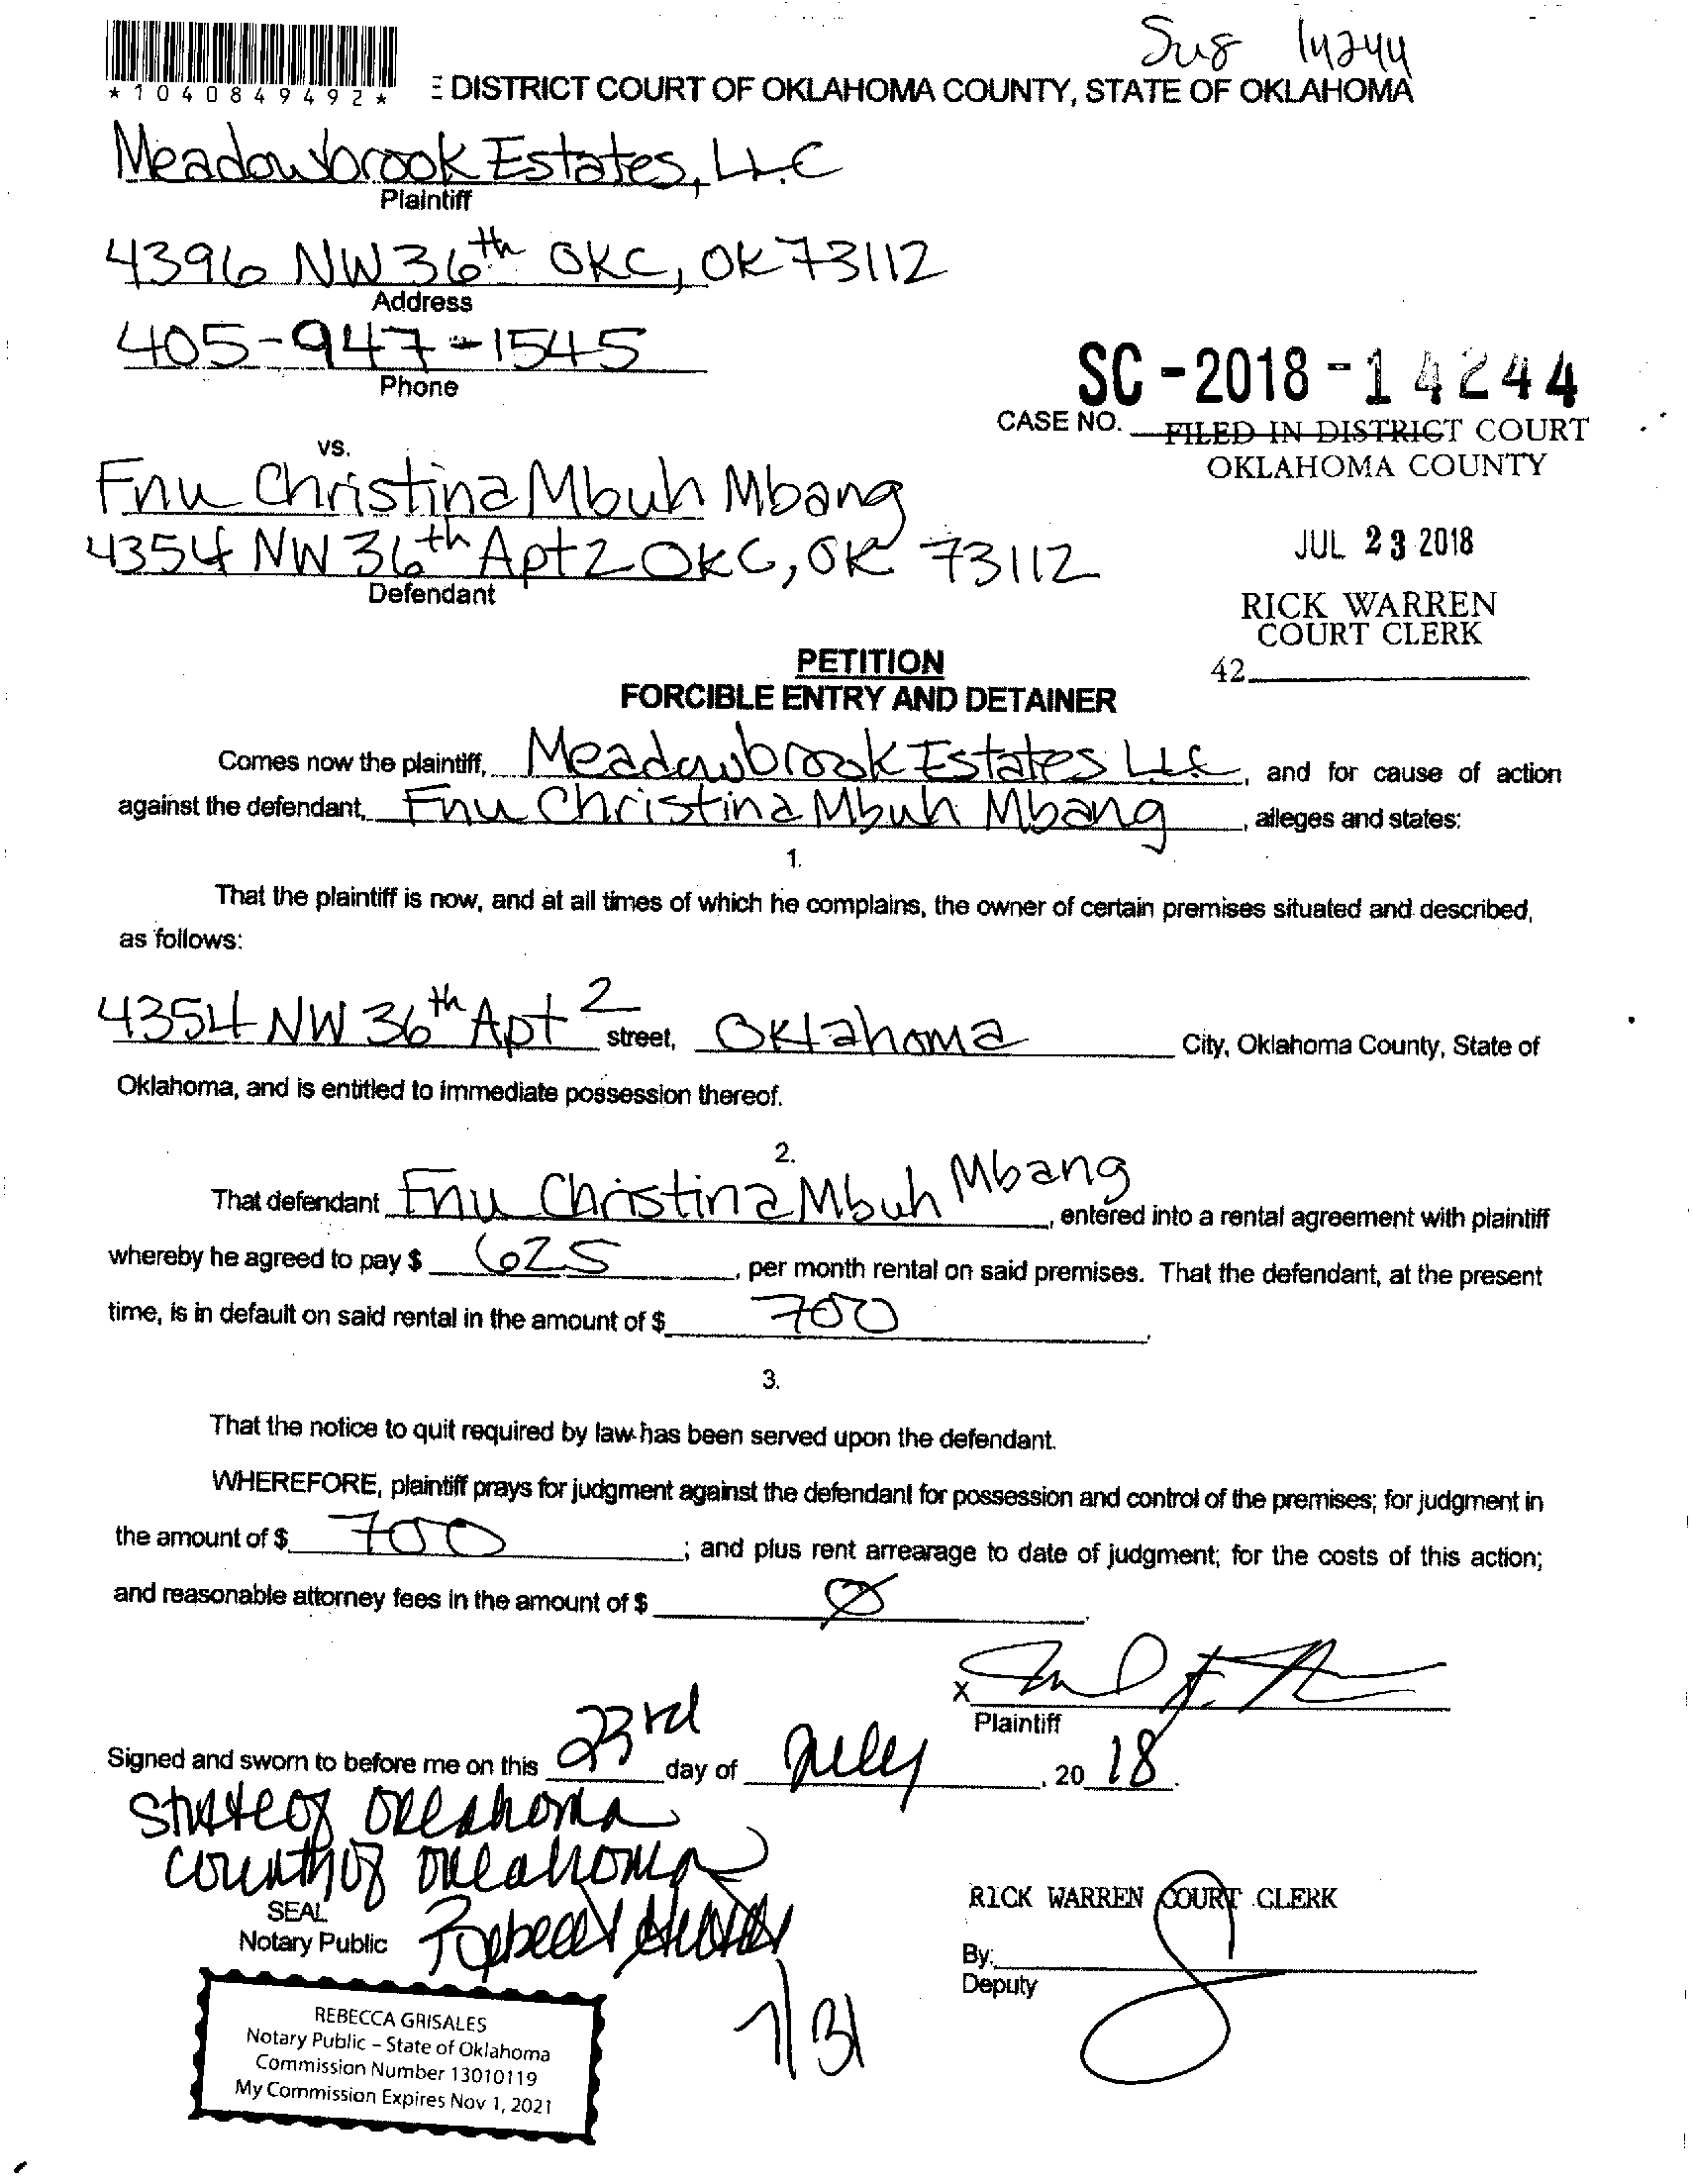 14244
*1040849492*
E DISTRICT COURT OF OKLAHOMA COUNTY, STATE OF OKLAHOMA
Meadowbrook Estates, LLC
Plaintiff
4396 NW 36th OKC, OK 73112
Address
405-947-1545
Phone
SC-2018-14244
CASE NO.
FILED IN DISTRICT COURT
OKLAHOMA COUNTY
vs.
Fnu Christina Mbuh Mbang
4354 NW 36th Apt 2 OKC, OK 73112
Defendant
JUL 23 2018
RICK WARREN
COURT CLERK
42
PETITION
FORCIBLE ENTRY AND DETAINER
Comes now the plaintiff, Meadowbrook Estates LLC, and for cause of action
against the defendant, Fnu Christina Mbuh Mbang, alleges and states:
1.
That the plaintiff is now, and at all times of which he complains, the owner of certain premises situated and described,
as follows:
4354 NW 36th Apt 2 street, Oklahoma City, Oklahoma County, State of
Oklahoma, and is entitled to immediate possession thereof.
2.
That defendant Fnu Christina Mbuh Mbang, entered into a rental agreement with plaintiff
whereby he agreed to pay $ 625, per month rental on said premises. That the defendant, at the present
time, is in default on said rental in the amount of $ 700.
3.
That the notice to quit required by law has been served upon the defendant.
WHEREFORE, plaintiff prays for judgment against the defendant for possession and control of the premises; for judgment in
the amount of $ 700; and plus rent arrearage to date of judgment; for the costs of this action;
and reasonable attorney fees in the amount of $ Ø.
X
Plaintiff
Signed and sworn to before me on this 23rd day of July, 2018.
State of Oklahoma
County of Oklahoma
SEAL
Notary Public
RICK WARREN COURT CLERK
By:
Deputy
REBECCA GRISALES
Notary Public - State of Oklahoma
Commission Number 13010119
My Commission Expires Nov 1, 2021
7/31